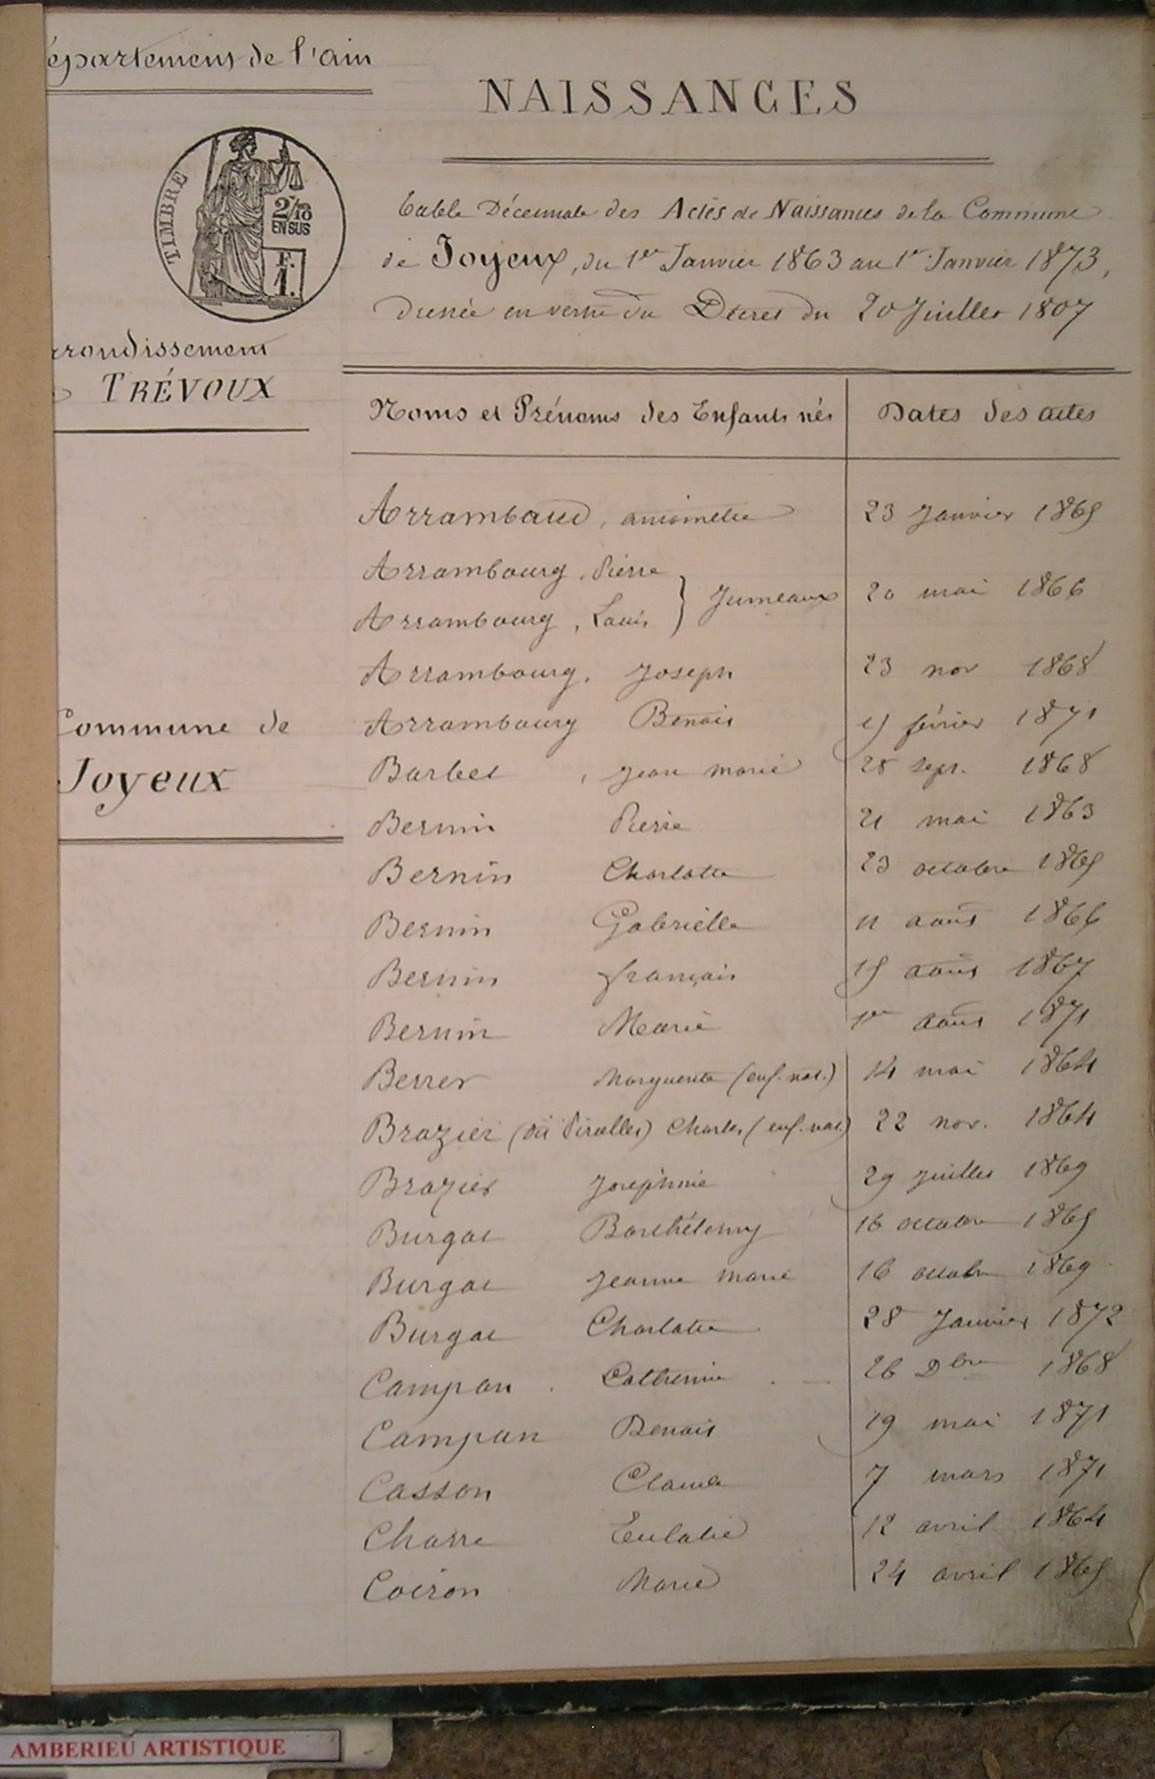 épartement de l'ain
NAISSANCES
TIMBRE
2/10
EN SUS
F.
1.
Table Décennale des Actes de Naissances de la Commune
de Joyeux, du 1er Janvier 1863 au 1er Janvier 1873,
dressée en vertu du Décret du 20 Juillet 1807
rrondissement
TRÉVOUX
Noms et Prénoms des Enfants nés Dates des actes
Arrambaud, antoinette 23 Janvier 1865
Arrambourg, Pierre
Jumeaux 20 mai 1866
Arrambourg, Louis
Arrambourg, Joseph 23 nov 1868
Commune de
Arrambourg Benoit 15 février 1871
Joyeux
Barbet, jean marie 28 sept. 1868
Bernin Pierre 21 mai 1863
Bernin Charlotte 23 octobre 1865
Bernin Gabrielle 11 août 1866
Bernin françois 15 août 1867
Bernin Marie 1er août 1871
Berrer Marguerite (enf. nat.) 14 mai 1864
Brazier (dit Pirolles) Charles (enf. nat.) 22 nov. 1864
Brazier Joséphine 29 juillet 1869
Burgat Barthélemy 16 octobre 1865
Burgat Jeanne marie 16 octobre 1869
Burgat Charlotte 28 Janvier 1872
Campan Catherine 26 Dbre 1868
Campan Benoit 19 mai 1871
Casson Claude 7 mars 1871
Charre Eulalie 12 avril 1864
Coiron Marie 24 avril 1865
AMBERIEU ARTISTIQUE